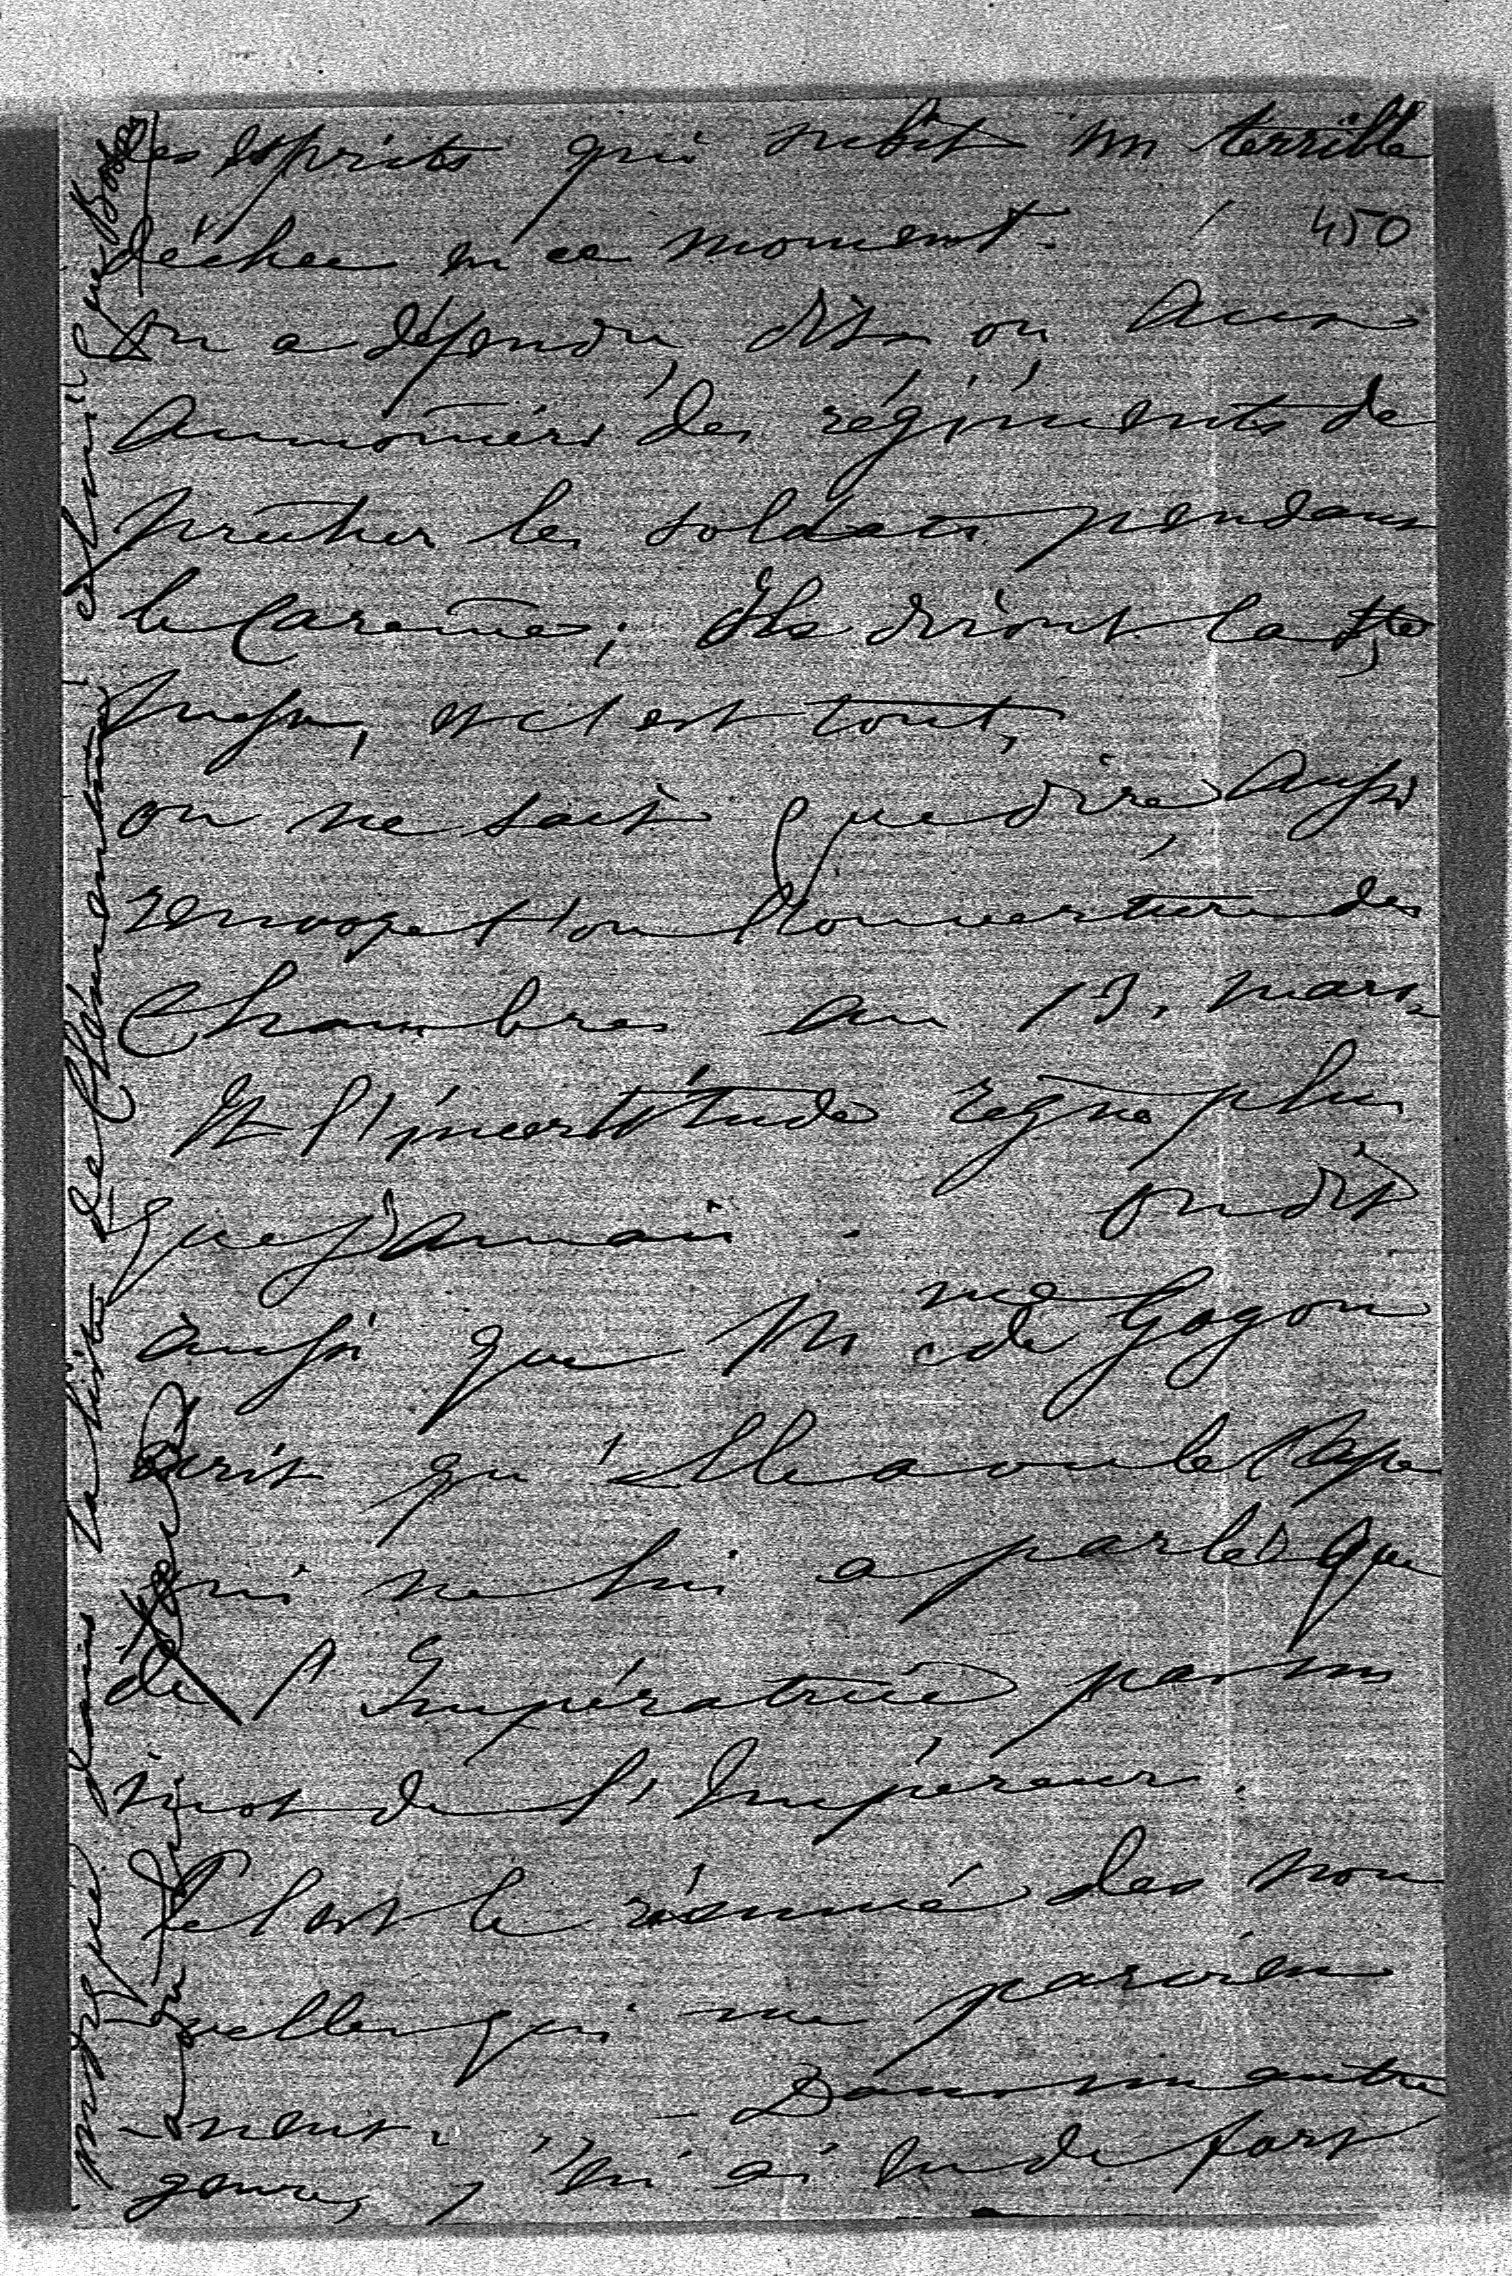 des esprits qui subit un terrible
450
déchec en ce moment.
on a défendu, dit on, aux
Aumôniers des régiments de
prêcher les soldats pendant
le Carême; Ils diront la Ste
messe, et c'est tout,
on ne sait que dire, aussi
renvoyet'on l'ouverture des
Chambres au 13. mars
Et l'incertitude règne plus
que jamais. on dit
aussi que Mme de Gogon
écrit qu'elle a vu le Pape
qui ne lui a parlé que
de l'Impératrice pas un
mot de l'Empereur.
Tel est le résumé des nou
velles qui me parvien
nent. Dans un autre
genre, j'en ai lu de fort
dans la liste de